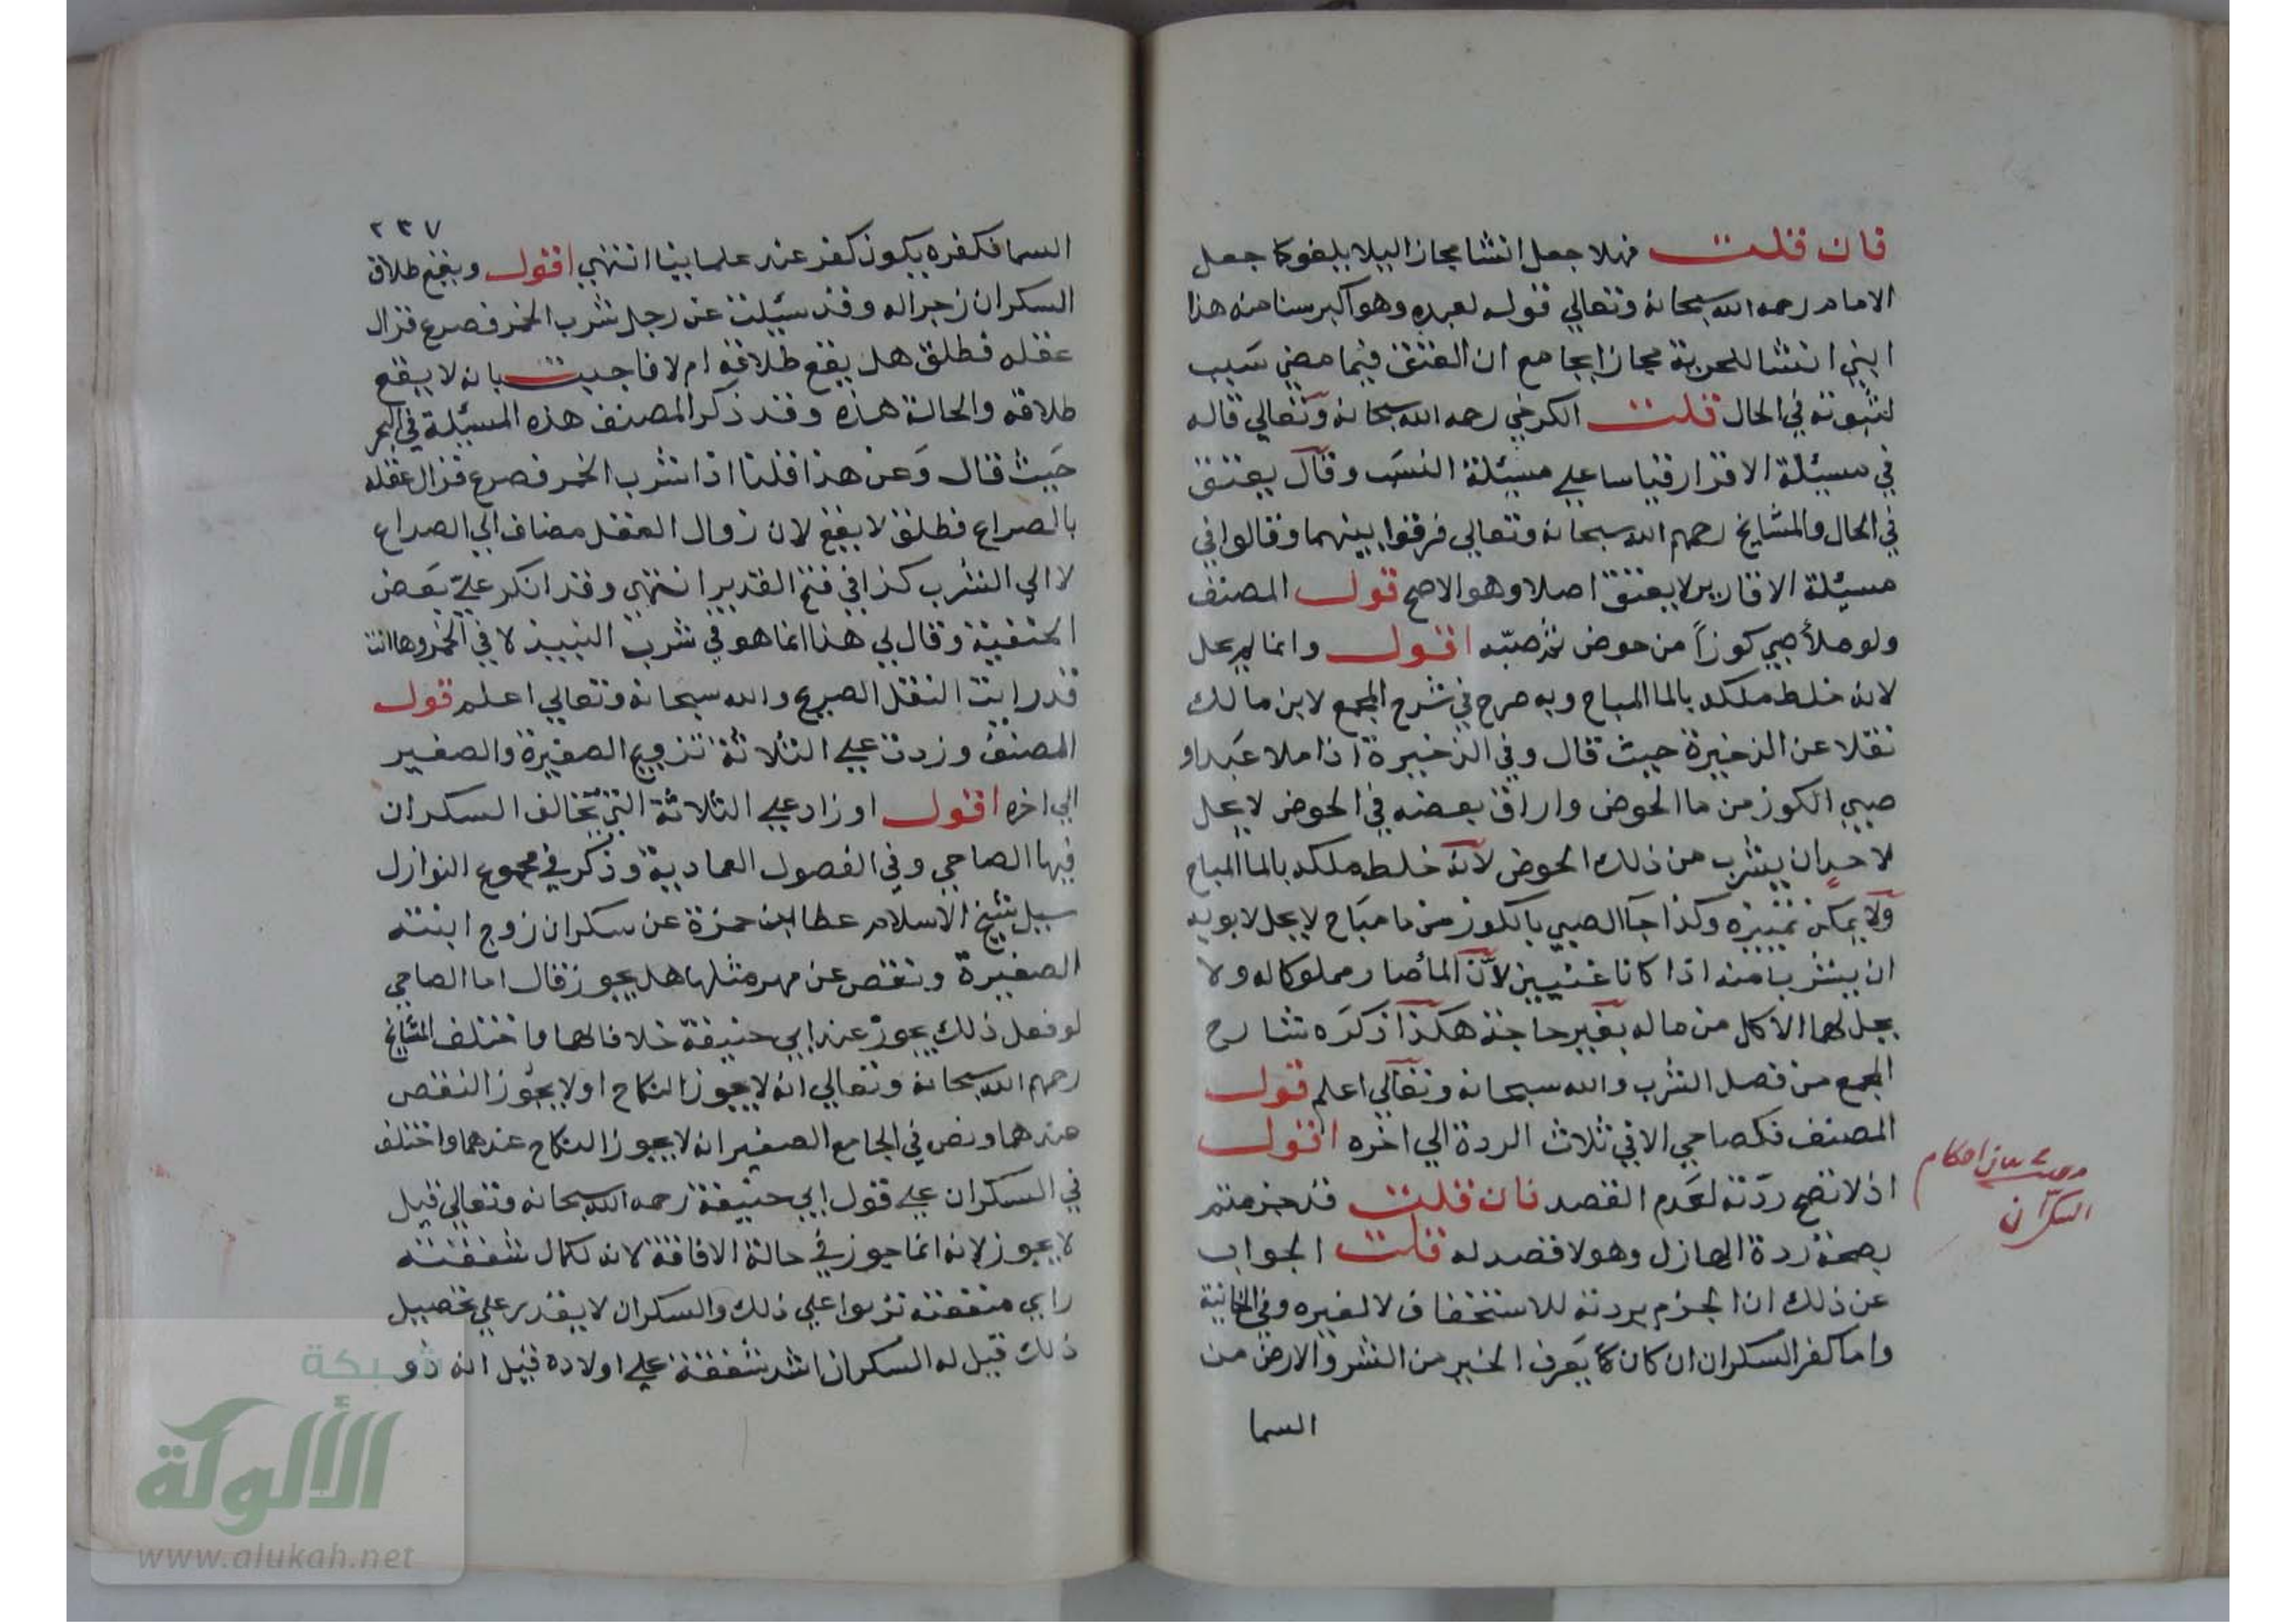 فان قلت فهلا جعل انشا مجازا ليلا يلغو كما جعل
الامام رحمه الله سبحانه وتعالي قوله لعبده وهو اكبر سنا منه هذا
ابني انشا للحرية مجازا بجامع ان العتق فيما مضي سبب
لثبوته في الحال قلت الكرخي رحمه الله سبحانه وتعالي قاله
في مسيئلة الاقرار قياسا علي مسيئلة النسب وقال يعتق
في الحال والمشايخ رحمهم الله سبحانه وتعالي فرقوا بينهما وقالوا في
مسيئلة الاقارير لا يعتق اصلا وهو الاصح قول المصنف
ولو ملأ صبي كوزا من حوض ثم صبه اقول وانما لم يحل
لانه خلط ملكه بالما المباح وبه صرح في شرح المجمع لابن مالك
نقلا عن الذخيرة حيث قال وفي الذخيرة اذا ملا عبد او
صبي الكوز من ما الحوض واراق بعضه في الحوض لا يحل
لاحد ان يشرب من ذلك الحوض لانه خلط ملكه بالما المباح
ولا يمكن تمييزه وكذا جآ الصبي بالكوز من ما مباح لا يحل لابويه
ان يشربا منه اذا كانا غنيين لان المأ صار مملوكا له ولا
يحل لهما الاكل من ماله بغير حاجة هكذا ذكره شارح
المجمع من فصل الشرب والله سبحانه وتعالي اعلم قول
المصنف فكصاحي الا في ثلاث الردة الي اخره اقول
اذ لا تصح ردته لعدم القصد فان قلت قد جزمتم
بصحة ردة الهازل وهو لا قصد له قلت الجواب
عن ذلك ان الجزم بردته للاستخفاف لا لغيره وفي الخانية
واما كفر السكران ان كان كا يعرف الخير من الشر والارض من
السما
احكام
السكران
٢٣٧
السما فكفره يكون كفر عند علماينا انتهي اقول ويقع طلاق
السكران زجرا له وقد سيئلت عن رجل شرب الخمر فصرع فزال
عقله فطلق هل يقع طلاقه ام لا فاجبت بانه لا يقع
طلاقه والحالة هذه وقد ذكر المصنف هذه المسيئلة في البحر
حيث قال وعن هذا قلنا اذا شرب الخمر فصرع فزال عقله
بالصراع فطلق لا يقع لان زوال العقل مضاف الي الصداع
لا الي الشرب كذا في فتح القدير انتهي وقد انكر علي بعض
الحنفية وقال لي هذا انما هو في شرب النبيذ لا في الخمر وها انت
قد رايت النقل الصريح والله سبحانه وتعالي اعلم قول
المصنف وزدت علي الثلاثة تزويج الصغيرة والصغير
الي اخره اقول او زاد علي الثلاثة التي تخالف السكران
فيها الصاحي وفي الفصول العمادية وذكر في مجموع النوازل
سيل شيخ الاسلام عطا ابن حمزة عن سكران زوج ابنته
الصغيرة ونقص عن مهر مثلها هل يجوز قال اما الصاحي
لو فعل ذلك يجوز عند ابي حنيفة خلافا لهما واختلف المشايخ
رحمهم الله سبحانه وتعالي انه لا يجوز النكاح او لا يجوز النقص
عندهما ونص في الجامع الصغير انه لا يجوز النكاح عندهما واختلف
في السكران علي قول ابي حنيفة رحمه الله سبحانه وتعالي قيل
لا يجوز لانه انما جوز في حالة الافاقة لانه لكمال شفقته
راي منفعته تربوا علي ذلك والسكران لا يقدر علي تحصيل
ذلك قيل له السكران اشد شفقة علي اولاده قيل انه ذو
شبكة
الألوكة
www.alukah.net